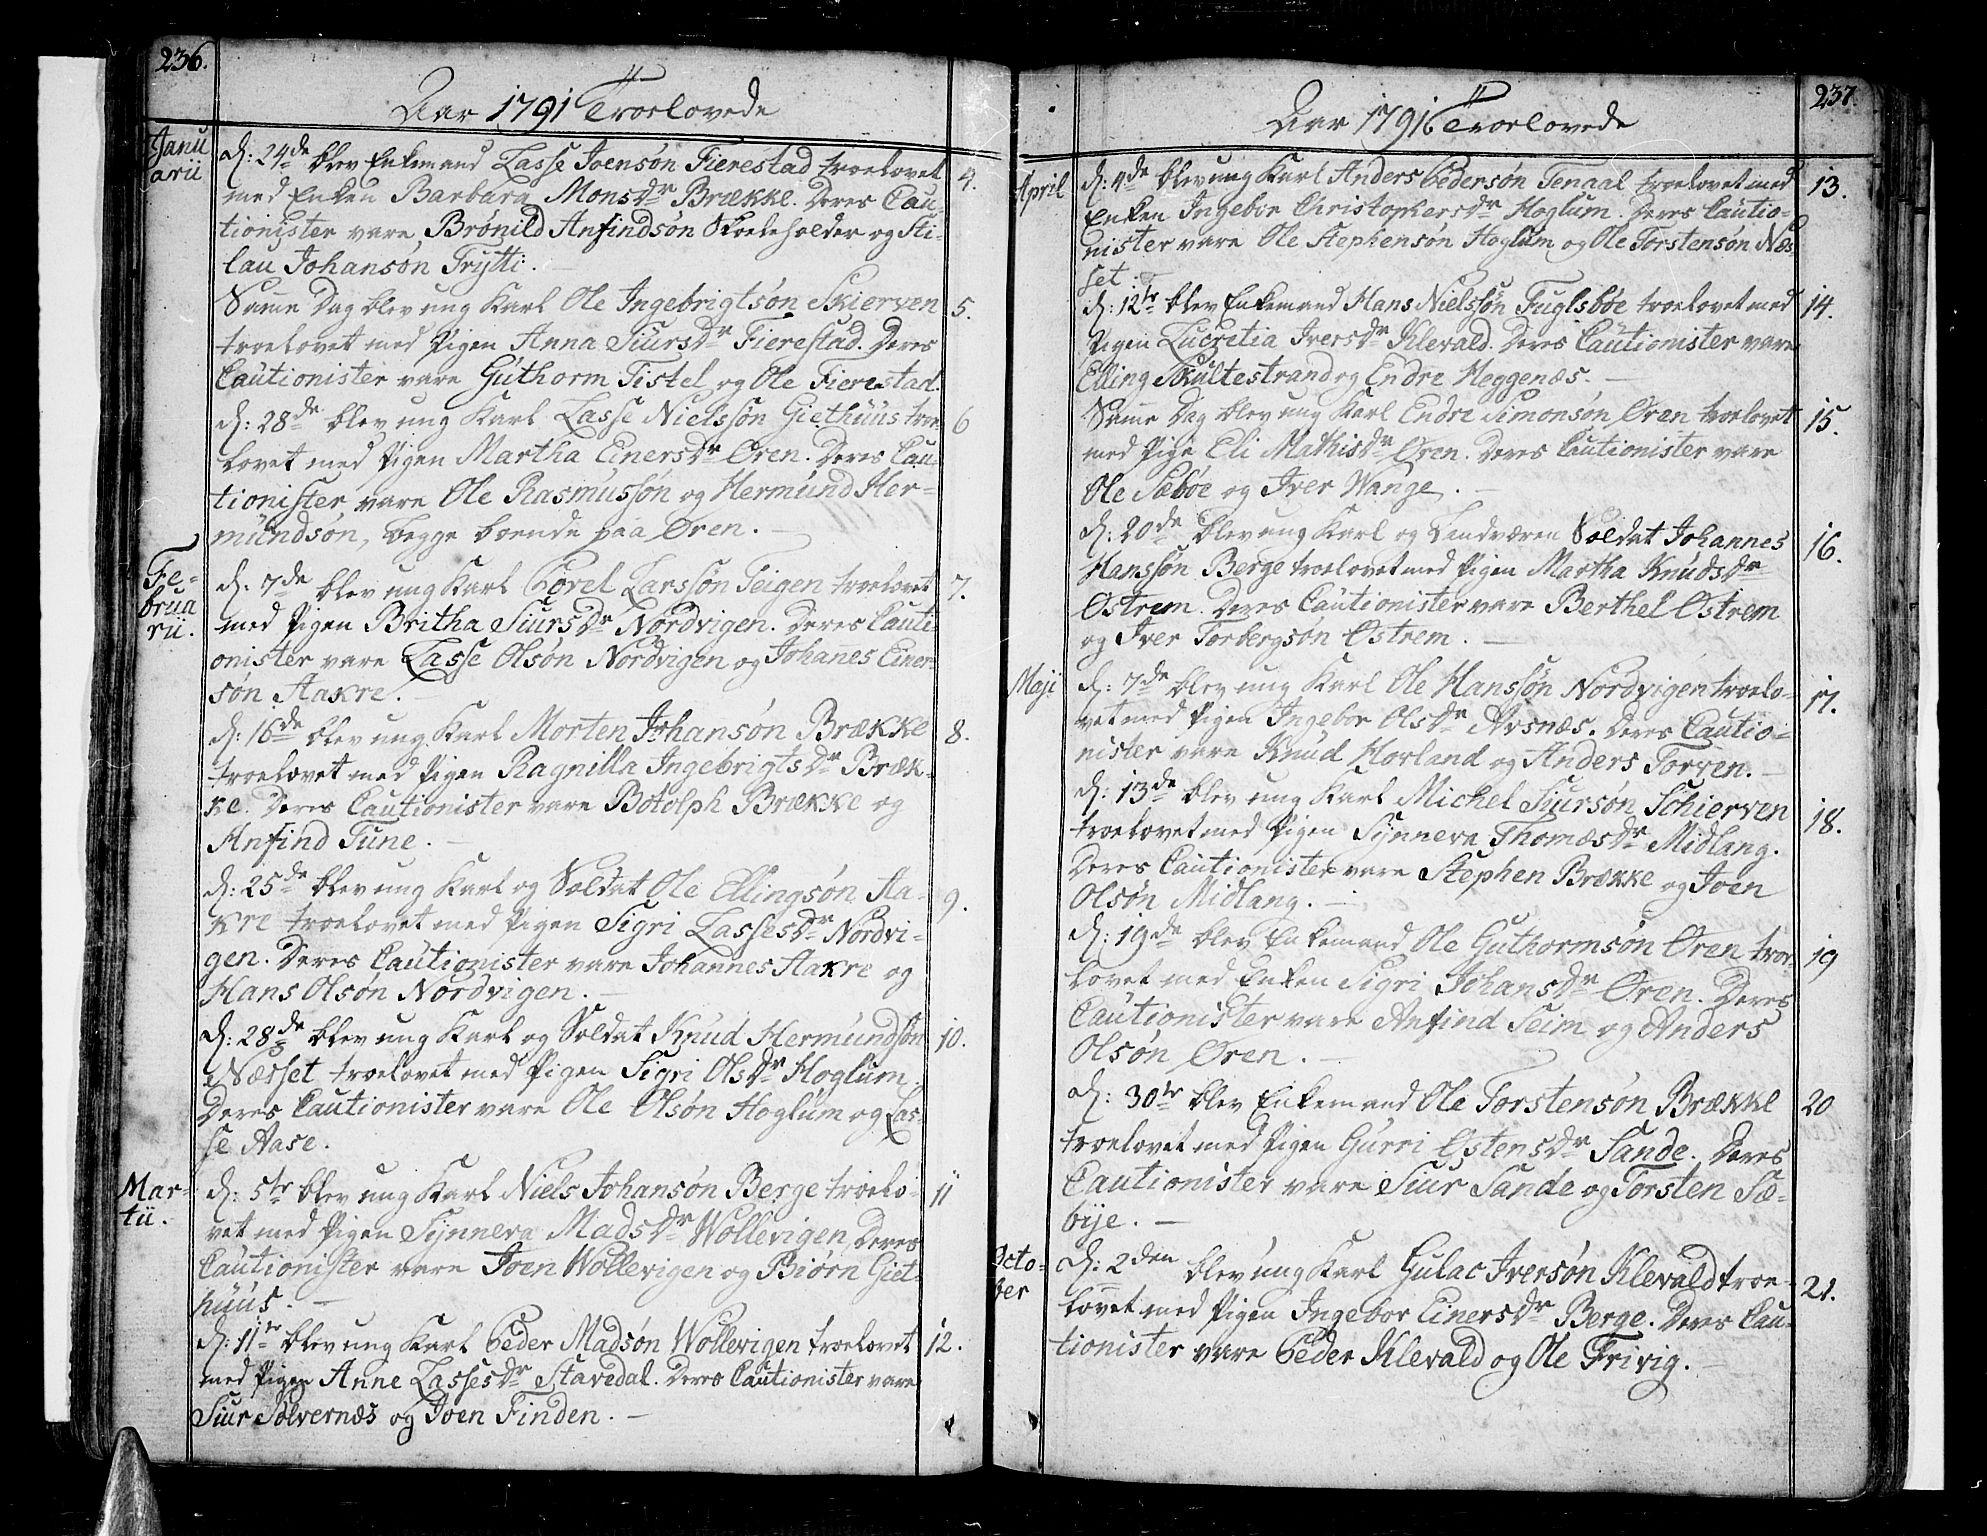 236.
Aar 1791 Troelovede
Janu
arii
d: 24de blev Enkemand Lasse Joensøn Fierestad troelovet 4.
med Enken Barbara Monsdr Brække. Deres Cau-
tionister vare, Brønild Anfindsøn Skoeleholder og Sti-
lau Johansøn Frytti.
Samme Dag blev ung Karl Ole Ingebrigtsøn Skierven 5.
troelovet med Pigen Anna Siursdr Fierestad. Deres
Cautionister vare Guthorm Tistel og Ole Fierestad.
d: 28de blev ung Karl Lasse Nielssøn Giethuus troe 6
lovet med Pigen Martha Einersdr Øren. Deres Cau
tionister vare Ole Rasmussøn og Hermund Her-
mundsøn, begge boende paa Øren.
Fe-
brua
rii.
d: 7de blev ung Karl Povel Larssøn Teigen troelovet 7.
med Pigen Britha Siursdr Nordvigen. Deres Cauti
onister vare Lasse Olsøn Nordvigen og Johanes Einer-
søn Aakre.
d: 16de blev ung Karl Morten Johansøn Brække 8.
troelovet med Pigen Ragnilla Ingebrigtsdr Bræk-
ke. Deres Cautionister vare Botolph Brække og
Anfind Tune.
d: 25de blev ung Karl og Soldat Ole Ellingsøn Aa- 9.
kre troelovet med Pigen Sigri Lassesdr Nordvi-
gen. Deres Cautionister vare Johannes Aakre og
Hans Olsøn Nordvigen.
d: 28de blev ung Karl og Soldat Knud Hermundsøn 10.
Nærset troelovet med Pigen Sigri Olsdr Hoglum.
Deres Cautionister vare Ole Olsøn Hoglum og Las-
se Aase.
Mar-
tii.
d: 5te blev ung Karl Niels Johansøn Berge troelo- 11
vet med Pigen Synneva Madsdr Wollevigen, Deres
Cautionister vare Joen Wollevigen og Biørn Giet-
huus.
d: 11te blev ung Karl Peder Madsøn Wollevigen troelovet 12.
med Pigen Anne Lassesdr Stavedal. Deres Cautionister vare
Siur Sølvernæs og Joen Finden.
237.
Aar 1791. Troelovede
April
d: 4de blev ung Karl Anders Pedersøn Tenaal troelovet med 13.
Enken Ingebor Christophersdr Hoglum. Deres Cautio-
nister vare Ole Stephensøn Hoglum og Ole Torstensøn Næs-
set.
d: 12te blev Enkemand Hans Nielssøn Fuglsbøe troelovet med 14.
Pigen Lucretia Iversdr Klevald. Deres Cautionister vare
Elling Skultestrand og Endre Heggenæs.
Samme Dag blev ung Karl Endre Simonsøn Øren troelovet 15.
med Pige Eli Mathisdr Øren. Deres Cautionister vare
Ole Sæbøe og Iver Wange.
d: 20de blev ung Karl og Landværen Soldat Johannes 16.
Hanssøn Berge troelovet med Pigen Martha Knudsdr
Ostrem. Deres Cautionister vare Berthel Ostrem
og Iver Torbergsøn Ostrem.
Maji
d: 7de blev ung Karl Ole Hanssøn Nordvigen troelo- 17.
vet med Pigen Ingebor Olsdr Avsnæs. Deres Cautio-
nister vare Knud Horland og Anders Torven.
d: 13de blev ung Karl Michel Siursøn Schierven 18.
troelovet med Pigen Synneva Thomæsdr Midlang.
Deres Cautionister vare Stephen Brække og Joen
Olsøn Midlang.
d: 19de blev Enkemand Ole Guthormsøn Øren troe- 19
lovet med Enken Sigri Johansdr Øren. Deres
Cautionister vare Anfind Seim og Anders
Olsøn Øren.
d: 30te blev Enkemand Ole Torstensøn Brække 20
troelovet med Pigen Gurri Ostensdr Sande. Deres
Cautionister vare Siur Sande og Torsten Sæ-
bije.
Octo-
ber
d: 2den blev ung Karl Gulac Iversøn Klevald troe- 21.
lovet med Pigen Ingebor Einersdr Berge. Deres Cau-
tionister vare Peder Klevald og Ole Frivig.